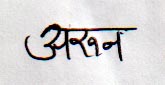 अरुन